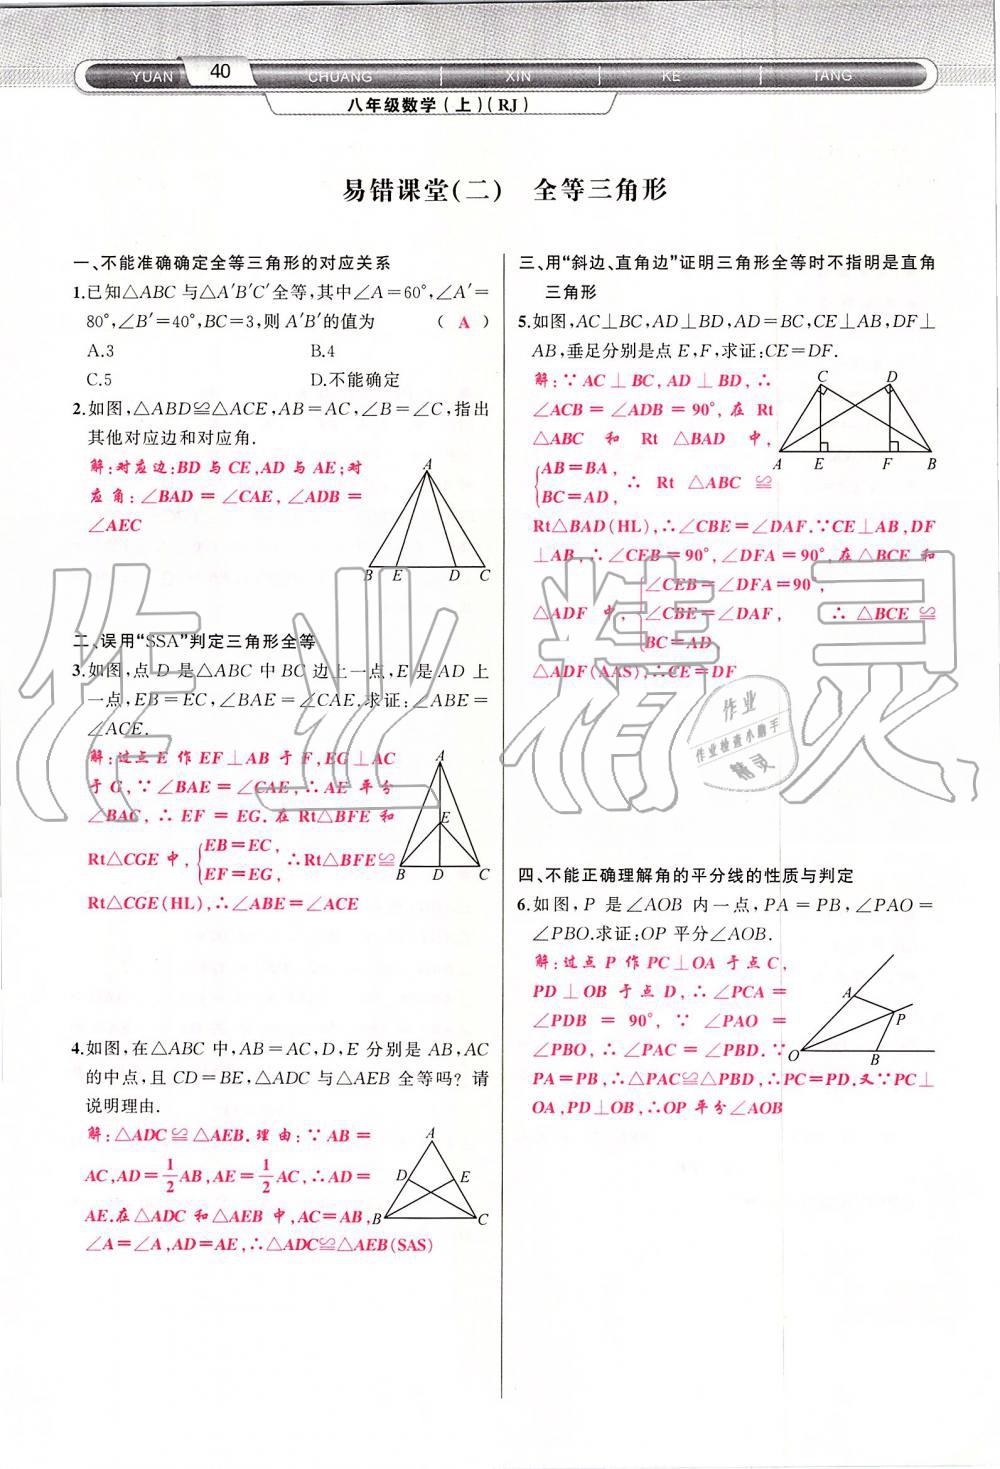 YUAN 40 CHUANG XIN KE TANG
八年级数学(上)(RJ)
易错课堂(二) 全等三角形
一、不能准确确定全等三角形的对应关系
1.已知△ABC与△A′B′C′全等,其中∠A=60°,∠A′=
80°,∠B′=40°,BC=3,则A′B′的值为 ( A )
A.3 B.4
C.5 D.不能确定
2.如图,△ABD≌△ACE,AB=AC,∠B=∠C,指出
其他对应边和对应角.
解:对应边:BD与CE,AD与AE;对
应角:∠BAD=∠CAE,∠ADB=
∠AEC
A
B E D C
二、误用“SSA”判定三角形全等
3.如图,点D是△ABC中BC边上一点,E是AD上
一点,EB=EC,∠BAE=∠CAE.求证:∠ABE=
∠ACE.
解:过点E作EF⊥AB于F,EG⊥AC
于G,∵∠BAE=∠CAE,∴AE平分
∠BAC,∴EF=EG.在Rt△BFE和
Rt△CGE中,{EB=EC, EF=EG, ∴Rt△BFE≌
Rt△CGE(HL),∴∠ABE=∠ACE
A
E
B D C
4.如图,在△ABC中,AB=AC,D,E分别是AB,AC
的中点,且CD=BE,△ADC与△AEB全等吗?请
说明理由.
解:△ADC≌△AEB.理由:∵AB=
AC,AD=1/2AB,AE=1/2AC,∴AD=
AE.在△ADC和△AEB中,AC=AB,
∠A=∠A,AD=AE,∴△ADC≌△AEB(SAS)
A
D E
B C
三、用“斜边、直角边”证明三角形全等时不指明是直角
三角形
5.如图,AC⊥BC,AD⊥BD,AD=BC,CE⊥AB,DF⊥
AB,垂足分别是点E,F,求证:CE=DF.
解:∵AC⊥BC,AD⊥BD,∴
∠ACB=∠ADB=90°,在Rt
△ABC和Rt△BAD中,
{AB=BA, BC=AD, ∴Rt△ABC≌
Rt△BAD(HL),∴∠CBE=∠DAF.∵CE⊥AB,DF
⊥AB,∴∠CEB=90°,∠DFA=90°,在△BCE和
△ADF中,{∠CEB=∠DFA=90°, ∠CBE=∠DAF, BC=AD ∴△BCE≌
△ADF(AAS),∴CE=DF
C D
A E F B
四、不能正确理解角的平分线的性质与判定
6.如图,P是∠AOB内一点,PA=PB,∠PAO=
∠PBO.求证:OP平分∠AOB.
解:过点P作PC⊥OA于点C,
PD⊥OB于点D,∴∠PCA=
∠PDB=90°,∵∠PAO=
∠PBO,∴∠PAC=∠PBD.∵
PA=PB,∴△PAC≌△PBD,∴PC=PD.又∵PC⊥
OA,PD⊥OB,∴OP平分∠AOB
A
P
O B
作业精灵
作业
作业检查小助手
精灵